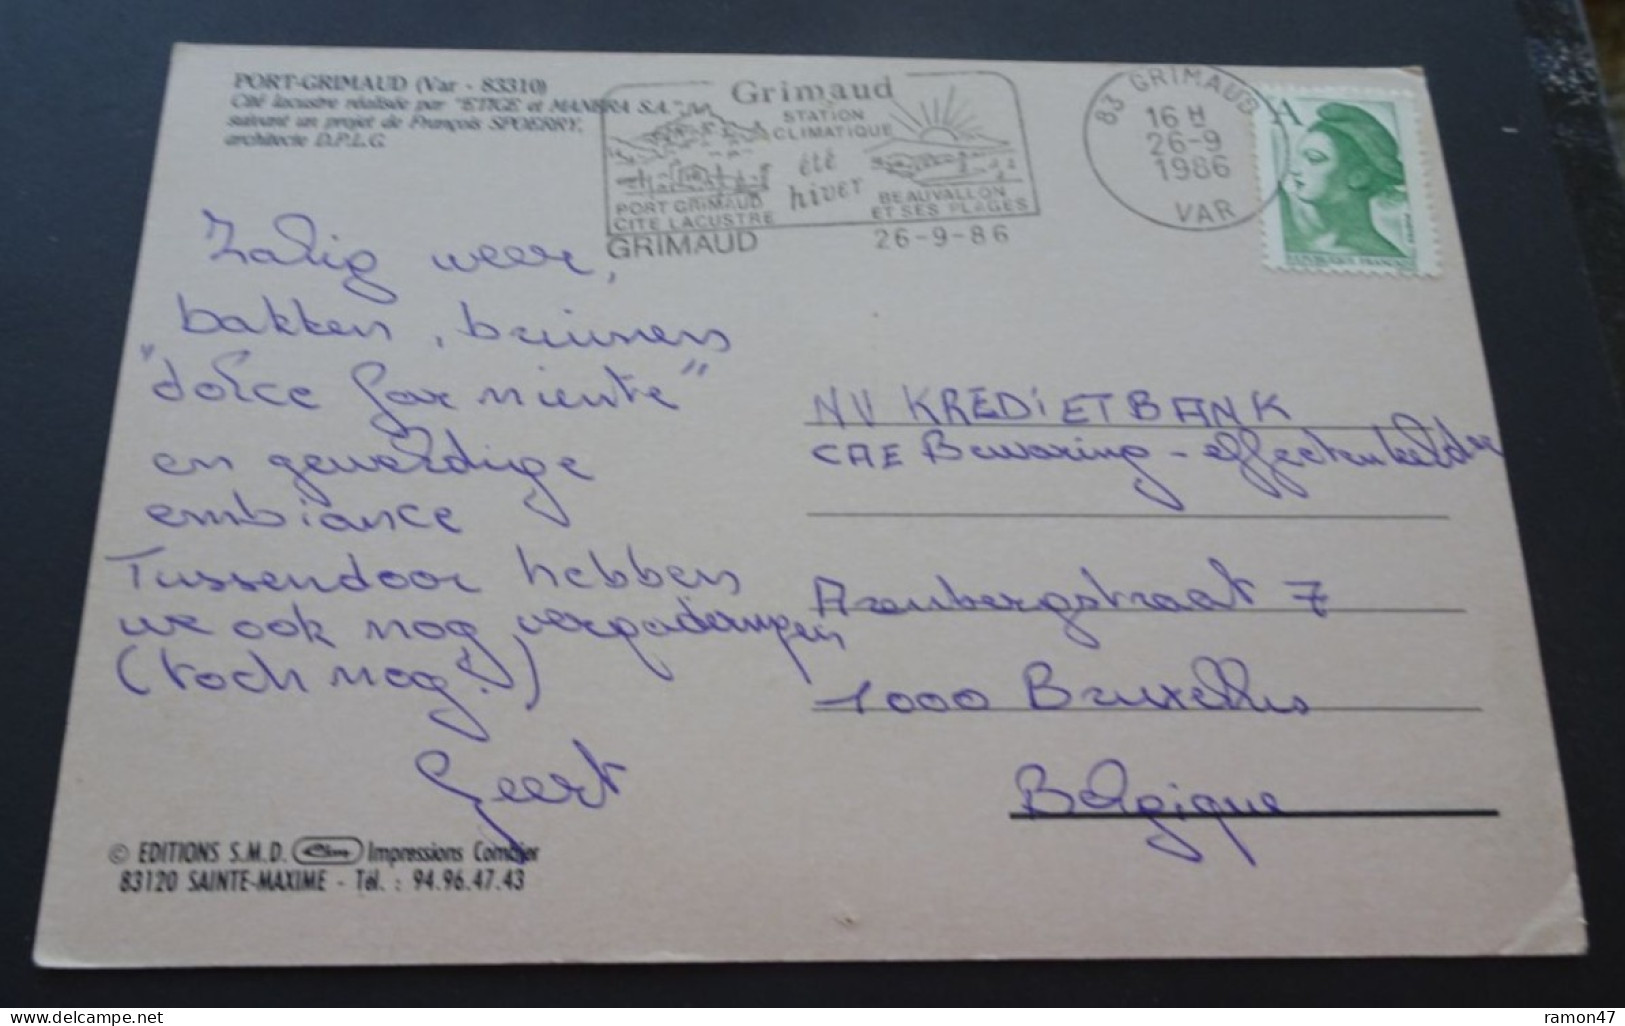 PORT-GRIMAUD (Var - 83310)
Cité lacustre réalisée par "ETIGE et MANERA S.A."
suivant un projet de François SPOERRY,
architecte D.P.L.G.
Grimaud
STATION
CLIMATIQUE
été
hiver
PORT GRIMAUD
CITE LACUSTRE
BEAUVALLON
ET SES PLAGES
GRIMAUD
26-9-86
83 GRIMAUD
16 H
26-9
1986
VAR
A
REPUBLIQUE FRANÇAISE
Zalig weer,
bakken, bruinen
"dolce far niente"
en geweldige
embiance
Tussendoor hebben
we ook nog vergaderingen
(toch nog!)
Geert
NV KREDIETBANK
CAE Bewaring - effectenkelder
Arenbergstraat 7
1000 Bruxelles
Belgique
© EDITIONS S.M.D. Cim Impressions Combier
83120 SAINTE-MAXIME - Tél. : 94.96.47.43
delcampe.net
ramon47